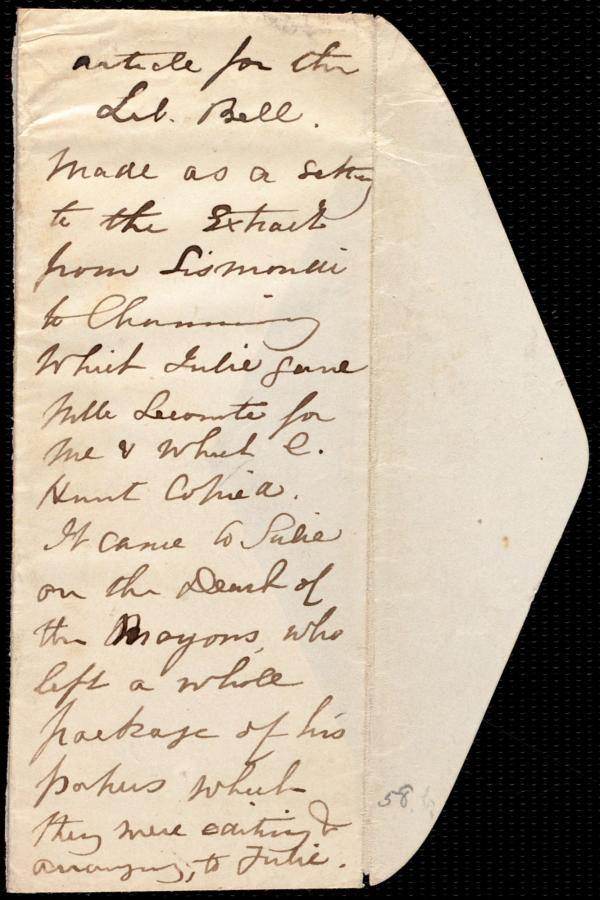 article for the
Lib. Bell.
Made as a setting
to the Extract
from Sismondi
to Channing
which Julie gave
Mlle Lecomte for
me & which E.
Hunt Copied.
It came to Julie
on the Death of
the Mayons, who
left a whole
package of his
papers which
they were editing &
arranging, to Julie.
58.